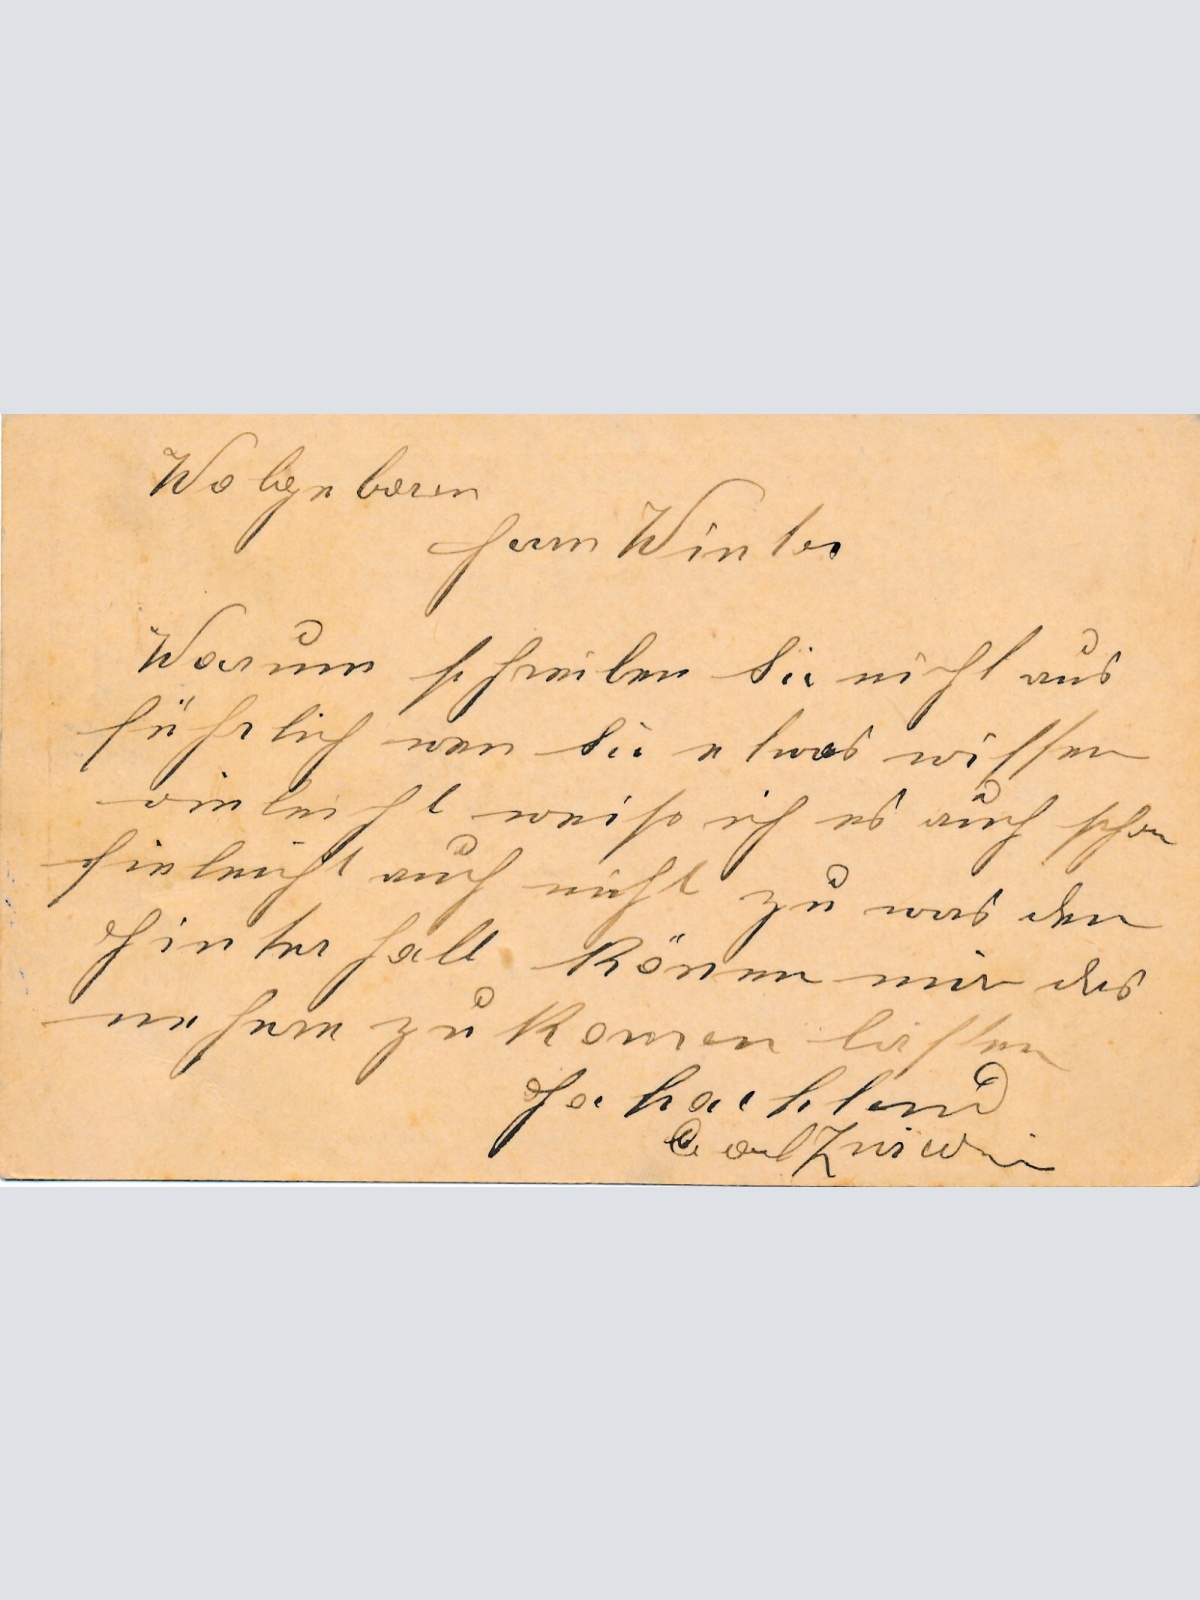 Wolgeboren
Herrn Winter
Warum schreiben Sie nicht aus
führlich wen Sie etwas wissen
vieleicht weiss ich es auch schon
fieleicht auch nicht zu was den
Hinterhalt könen mir das
nehere zu komen lassen
Hochachtend
Carl